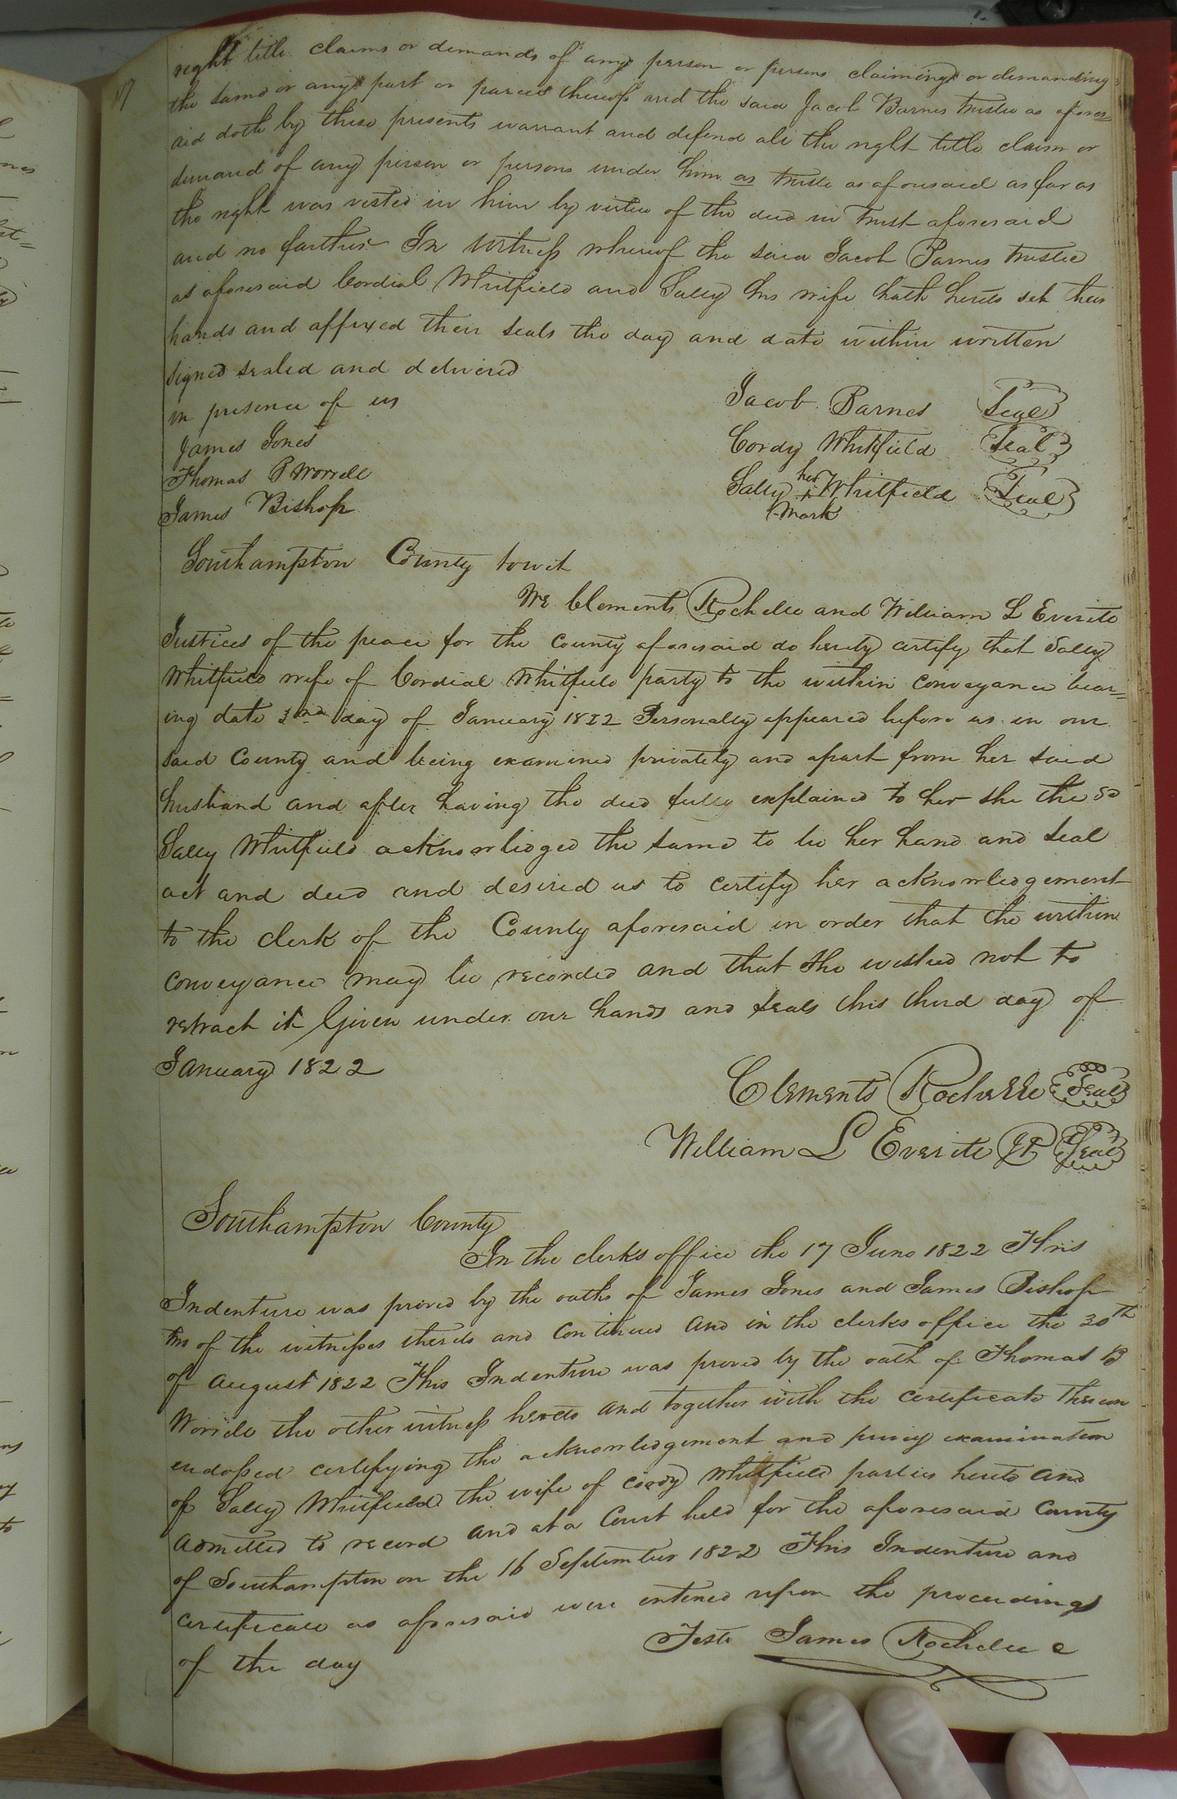 17
right title claims or demands of any person or persons claiming or demanding
the same or any part or parcel thereof and the said Jacob Barnes trustee as afores=
aid doth by these presents warrant and defend all the right title claim or
demand of any person or persons under him as trustee as aforesaid as far as
the right was vested in him by virtue of the deed in trust aforesaid
and no farther In witness whereof the said Jacob Barnes trustee
as aforesaid Cordial Whitfield and Sally his wife hath hereto set their
hands and affixed their seals the day and date within written
signed sealed and delivered
in presence of us
James Jones
Thomas B Worrell
James Bishop
Jacob Barnes Seal
Cordy Whitfield Seal
Sally her Whitfield Seal
mark
Southampton County towit
We Clements Rochelle and William L Everite
Justices of the peace for the county aforesaid do hereby certify that Sally
Whitfield wife of Cordial Whitfield party to the within conveyance bear=
ing date 2nd day of January 1822 Personally appeared before us in our
said County and being examined privately and apart from her said
husband and after having the deed fully explained to her she the sd
Sally Whitfield acknowledged the same to be her hand and seal
act and deed and desired us to certify her acknowledgement
to the clerk of the County aforesaid in order that the within
conveyance may be recorded and that she wished not to
retract it Given under our hands and seals this third day of
January 1822
Clements Rochelle Seal
William L Everite JP Seal
Southampton County
In the clerks office the 17 June 1822 This
Indenture was proved by the oaths of James Jones and James Bishop
two of the witnesses thereto and continued and in the clerks office the 30th
of August 1822 This Indenture was proved by the oath of Thomas B
Worrele the other witness hereto and together with the certificate thereon
endossed certifying the acknowledgement and privey examination
of Sally Whitfield the wife of cordy Whitfield parties hereto and
admitted to record and at a Court held for the aforesaid County
of Southampton on the 16 September 1822 This Indenture and
certificate as aforesaid were entered upon the proceedings
of the day
Teste James Rochelle c